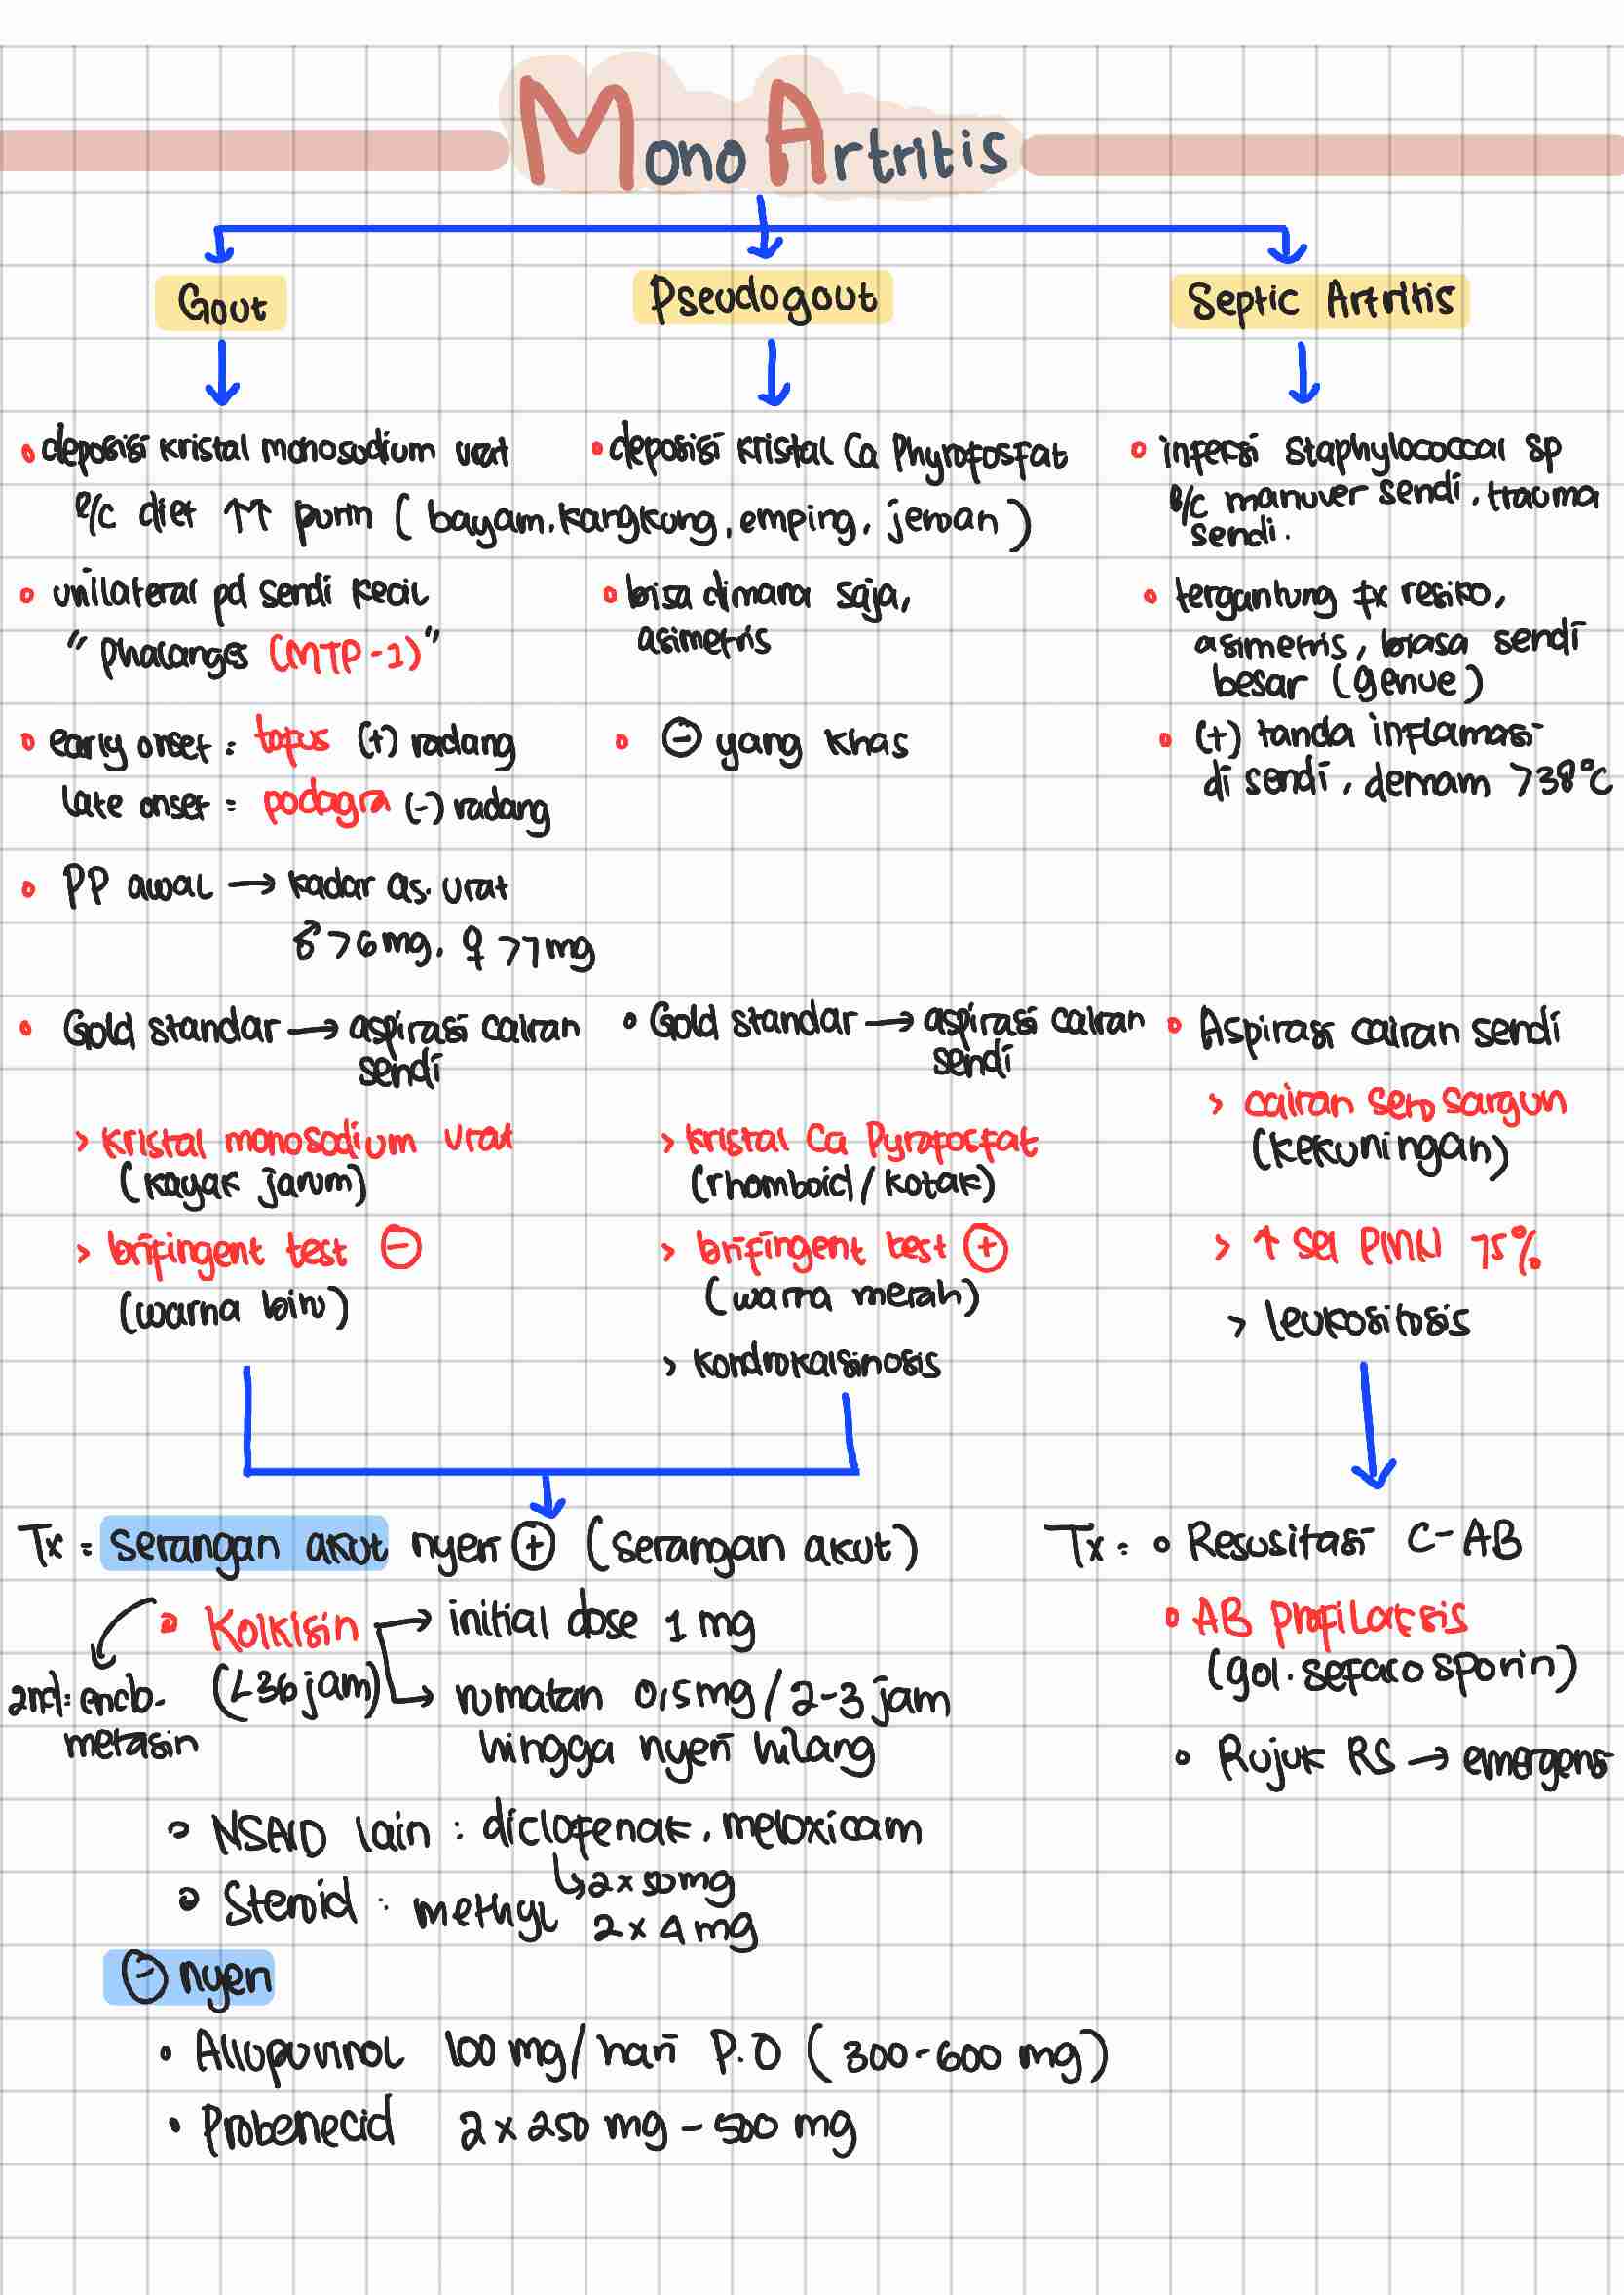 Mono Artritis
Gout
Pseudogout
Septic Artritis
• deposisi kristal monosodium urat
e/c diet ↑↑ purin (bayam, kangkung, emping, jeroan)
• unilateral pd sendi kecil
" phalanges (MTP-1)"
• early onset = tofus (+) radang
late onset = podagra (-) radang
• PP awal → kadar as. urat
♂ >6 mg, ♀ >7 mg
• Gold standar → aspirasi cairan
sendi
> kristal monosodium urat
(kayak jarum)
> brifingent test ⊖
(warna biru)
• deposisi kristal Ca Phyrofosfat
• bisa dimana saja,
asimetris
• ⊖ yang khas
• Gold standar → aspirasi cairan
sendi
> kristal Ca Pyrofosfat
(rhomboid/kotak)
> brifingent test ⊕
(warna merah)
> kondrokalsinosis
• infeksi staphylococcal sp
e/c manuver sendi, trauma
sendi.
• tergantung fx resiko,
asimetris, biasa sendi
besar (genue)
• (+) tanda inflamasi
di sendi, demam >38°C
• Aspirasi cairan sendi
> cairan sero sargun
(kekuningan)
> ↑ sel PMN 75%
> leukositosis
Tx = serangan akut nyeri ⊕ (serangan akut)
• Kolkisin → initial dose 1 mg
(<36 jam) → rumatan 0,5 mg/2-3 jam
hingga nyeri hilang
2nd: endo-
metasin
• NSAID lain : diclofenak, meloxicam
↳ 2 x 50 mg
• Steroid : methyl 2 x 4 mg
⊖ nyeri
• Allopurinol 100 mg/hari P.O (300-600 mg)
• Probenecid 2 x 250 mg - 500 mg
Tx = • Resusitasi C-AB
• AB profilaksis
(gol. sefalosporin)
• Rujuk RS → emergensi